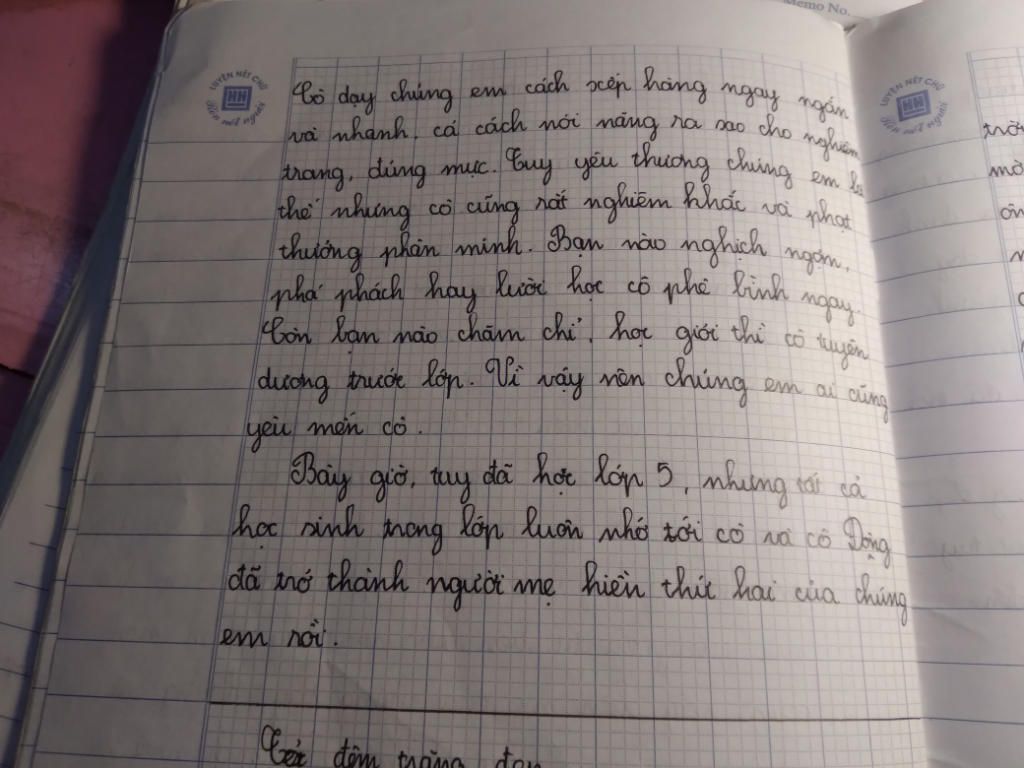 Memo No.
LUYỆN NÉT CHỮ
HH
Rèn nét người
Cô dạy chúng em cách xếp hàng ngay ngắn
và nhanh, cả cách nói năng ra sao cho nghiêm
trang, đúng mực. Tuy yêu thương chúng em là
thế nhưng cô cũng rất nghiêm khắc và phạt
thưởng phân minh. Bạn nào nghịch ngợm,
phá phách hay lười học cô phê bình ngay.
Còn bạn nào chăm chỉ, học giỏi thì cô tuyên
dương trước lớp. Vì vậy nên chúng em ai cũng
yêu mến cô.
Bây giờ, tuy đã học lớp 5, nhưng tất cả
học sinh trong lớp luôn nhớ tới cô và cô Dộng
đã trở thành người mẹ hiền thứ hai của chúng
em rồi.
đêm trăng đẹp
LUYỆN NÉT CHỮ
HH
Rèn nét người